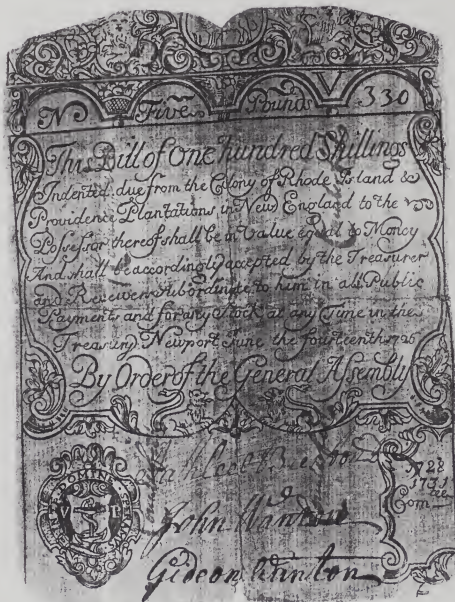 No Five Pounds 330
This Bill of One hundred Shillings
Indented due from the Colony of Rhode Island &
Providence Plantations in New England to the
Possessor thereof shall be in Value equal to Money
And shall be accordingly accepted by the Treasurer
and Receivers Subordinate to him in all Public
Payments and for any Stock at any Time in the
Treasury Newport June the fourteenth
By Order of the General Assembly
John Wanton
Gideon Wanton
1728
1731
Com
IN TE DOMINE